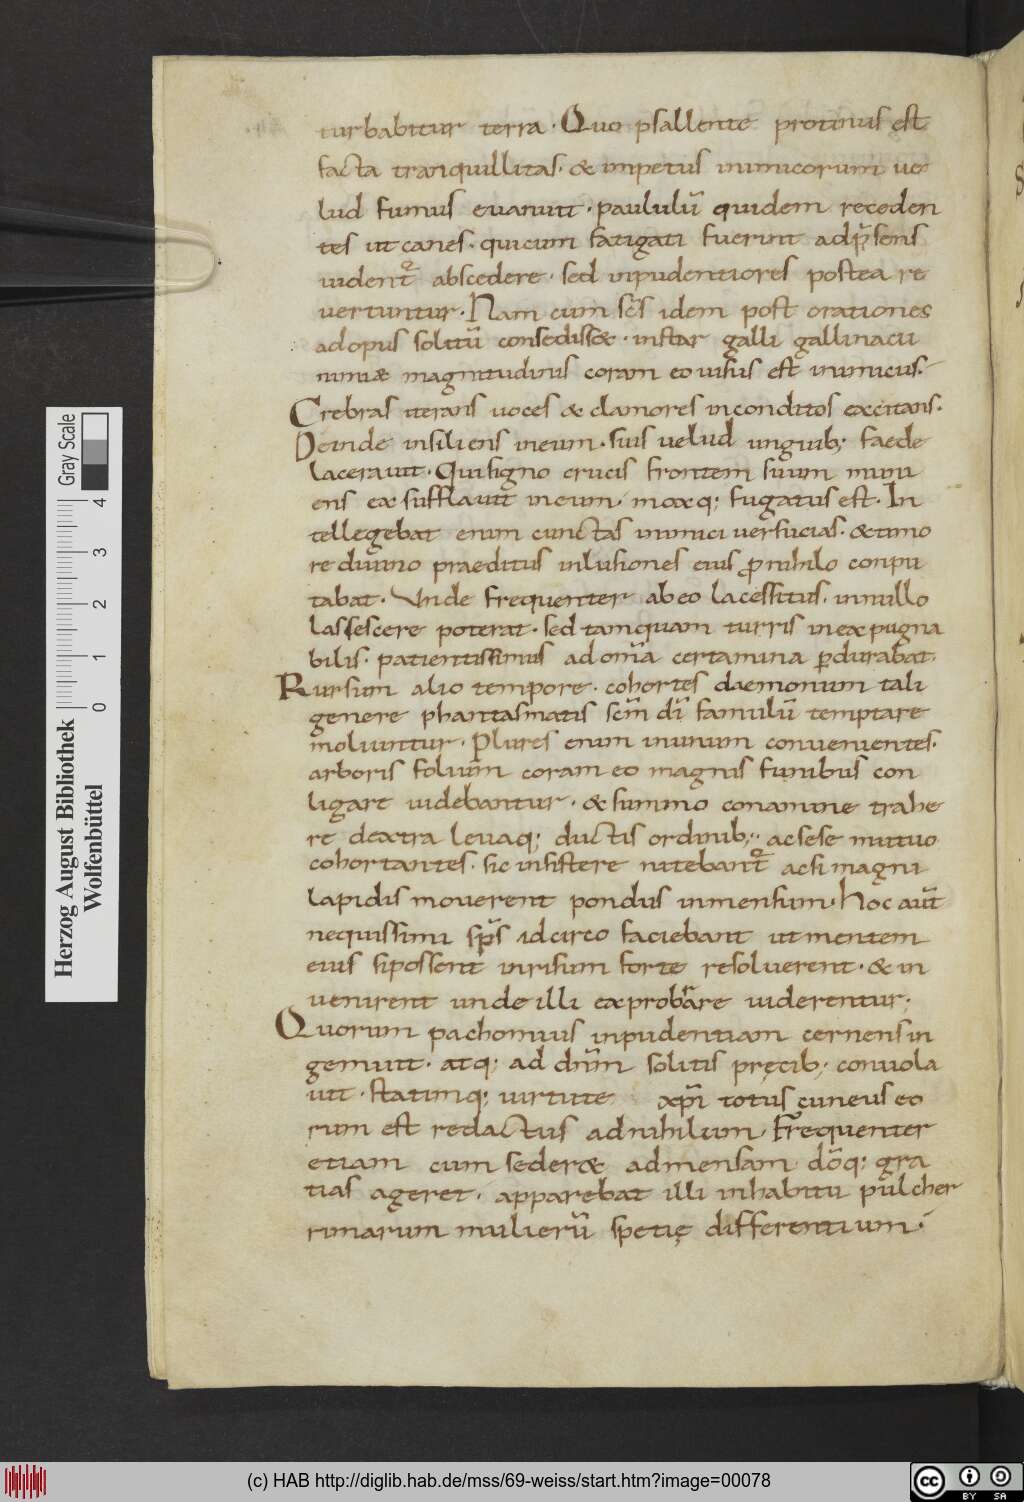 turbabitur terra. Quo psallente protinus est
facta tranquillitas. & impetus inimicorum ue
lud fumus euanuit. paululū quidem receden
tes ut canes. qui cum fatigati fuerint ad p̄sens
uident᷑ abscedere. sed inpudentiores postea re
uertuntur. Nam cum sc̄s idem post orationes
ad opus solitū consediss&. instar galli gallinacii
nimiæ magnitudinis coram eo uisus est inimicus.
Crebras iterans uoces & clamores inconditos excitans.
Deinde insiliens in eum. suis uelud unguib; faede
lacerauit. Qui signo crucis frontem suum muni
ens exsufflauit in eum. moxq; fugatus est. In
tellegebat enim cunctas inimici uersucias. & timo
re diuino praeditus inlusiones eius ꝓ nihilo conpu
tabat. Unde frequenter ab eo lacessitus. in nullo
lassescere poterat. sed tamquam turris inexpugna
bilis. patientissimus ad om̄ia certamina ꝑdurabat.
Rursum alio tempore. cohortes daemonum tali
genere phantasmatis sc̄m dī famulū temptare
moliuntur. Plures enim in unum conuenientes.
arboris folium coram eo magnis funibus con
ligare uidebantur. & summo conamine trahe
re dextra leuaq; ductis ordinib;. ac sese mutuo
cohortantes. sic insistere nitebant᷑ acsi magni
lapidis mouerent pondus inmensum. Hoc aūt
nequissimi sp̄s idcirco faciebant ut mentem
eius si possent in risum forte resoluerent. & in
uenirent unde illi exprobrare uiderentur.
Quorum pachomius inpudentiam cernens in
gemuit. atq; ad dn̄m solitis pręcib; conuola
uit. statimq; uirtute xp̄i totus cuneus eo
rum est redactus ad nihilum. Frequenter
etiam cum seder& ad mensam dōq; gra
tias ageret. apparebat illi in habitu pulcher
rimarum mulierū spetię differentium.
Herzog August Bibliothek
Wolfenbüttel
0 1 2 3 4
Gray Scale
(c) HAB http://diglib.hab.de/mss/69-weiss/start.htm?image=00078
cc BY SA